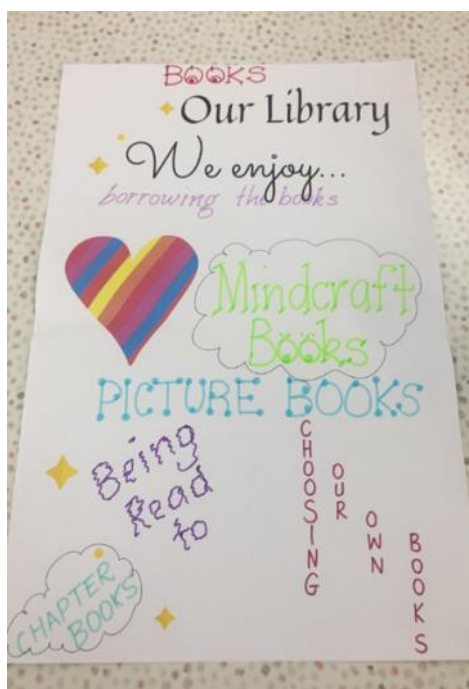 BOOKS
Our Library
We enjoy...
borrowing the books
Mindcraft
Books
PICTURE BOOKS
Being
Read
to
CHOOSING
OUR
OWN
BOOKS
CHAPTER
BOOKS